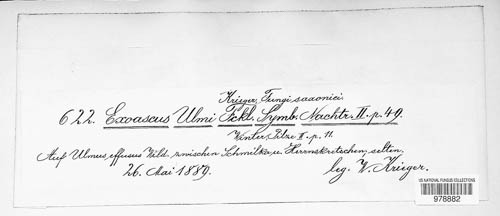 Krieger, Fungi saxonici.
622. Exoascus Ulmi Fckl. Symb. Nachtr. II. p. 49.
Winter, Pilze II. p. 11.
Auf Ulmus effusus Willd. zwischen Schmilka u. Herrnskretschen, selten.
26. Mai 1889. leg. W. Krieger.
US NATIONAL FUNGUS COLLECTIONS
978882